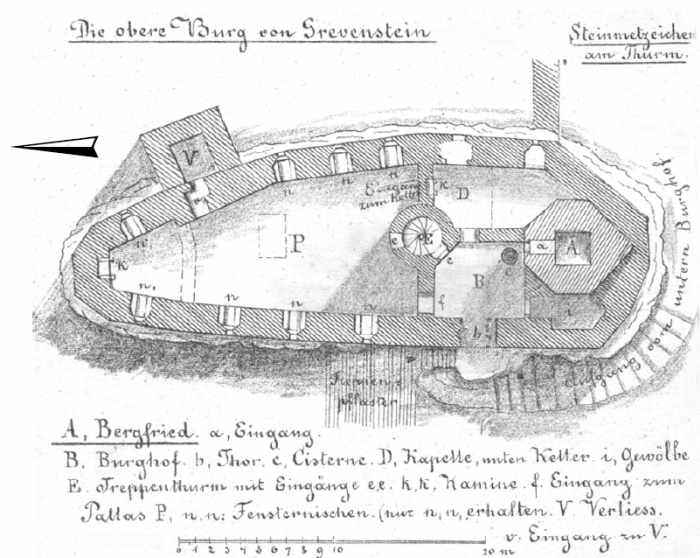 Die obere Burg von Grevenstein
Steinmetzzeichen
am Thurm.
V
v
n
n
n
Eingang
zum Keller
k
D
n
k
P
e
E
e
a
A
B
c
i
n
n
n
n
f
b
Aufgang vom untern Burghof
Treppen
pflaster
A, Bergfried. a, Eingang.
B. Burghof. b, Thor. c, Cisterne. D, Kapelle, unten Keller. i, Gewölbe
E. Treppenthurm mit Eingänge e.e. k,k, Kamine. f. Eingang zum
Pallas P, n,n: Fensternischen. (nur n,n, erhalten. V. Verliess.
v. Eingang zu V.
0 1 2 3 4 5 6 7 8 9 10 20 m